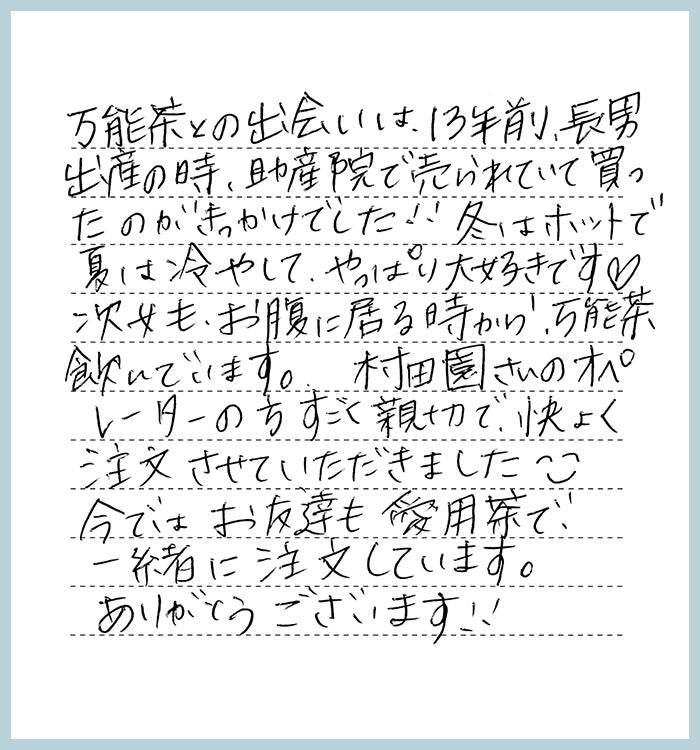 万能茶との出会いは、13年前、長男
出産の時、助産院で売られていて買っ
たのがきっかけでした!! 冬はホットで
夏は冷やして、やっぱり大好きです♡
次女も、お腹に居る時から、万能茶
飲んでいます。 村田園さんのオペ
レーターの方すごく親切で、快よく
注文させていただきました
今では お友達も 愛用茶で、
一緒に注文しています。
ありがとうございます!!